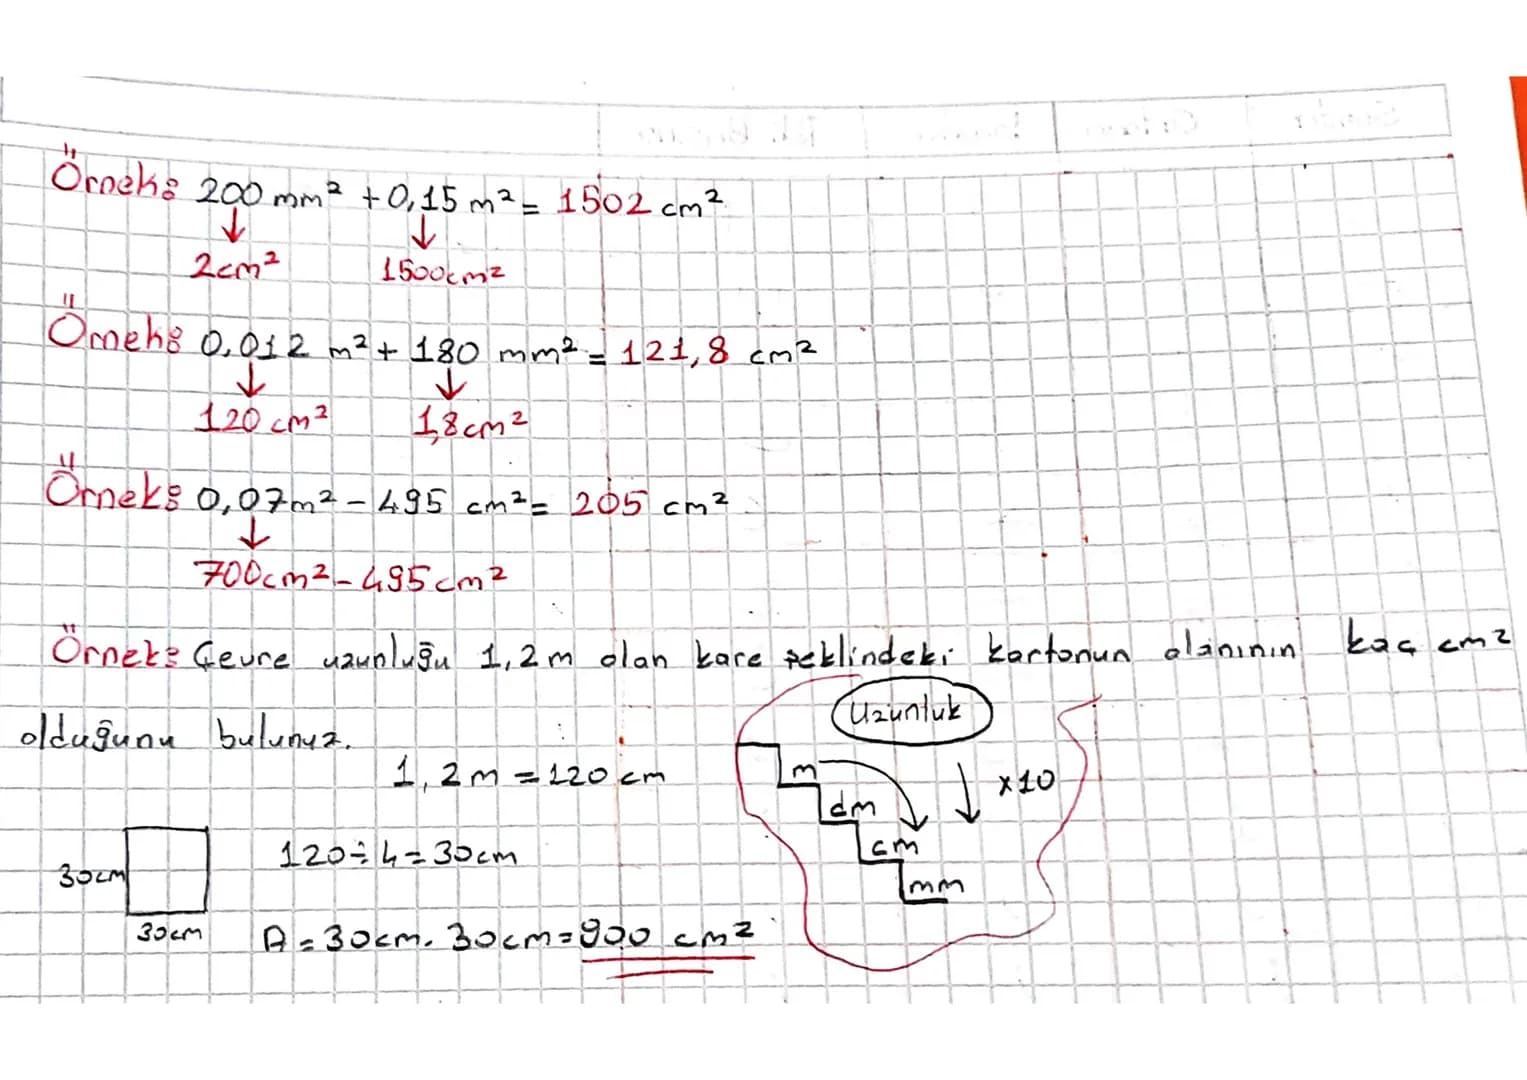 Örnek: 200 mm² + 0,15 m² = 1502 cm²
2cm² 1500cm²
Örnek: 0,012 m² + 180 mm² = 121,8 cm²
120 cm² 1,8cm²
Örnek: 0,07m² - 495 cm² = 205 cm²
700cm² - 495cm²
Örnek: Çevre uzunluğu 1,2m olan kare şeklindeki kartonun alanının kaç cm²
olduğunu bulunuz.
1,2m = 120 cm
30cm
30cm
120 ÷ 4 = 30cm
A = 30cm. 30cm = 900 cm²
Uzunluk
m
dm
cm
mm
x10